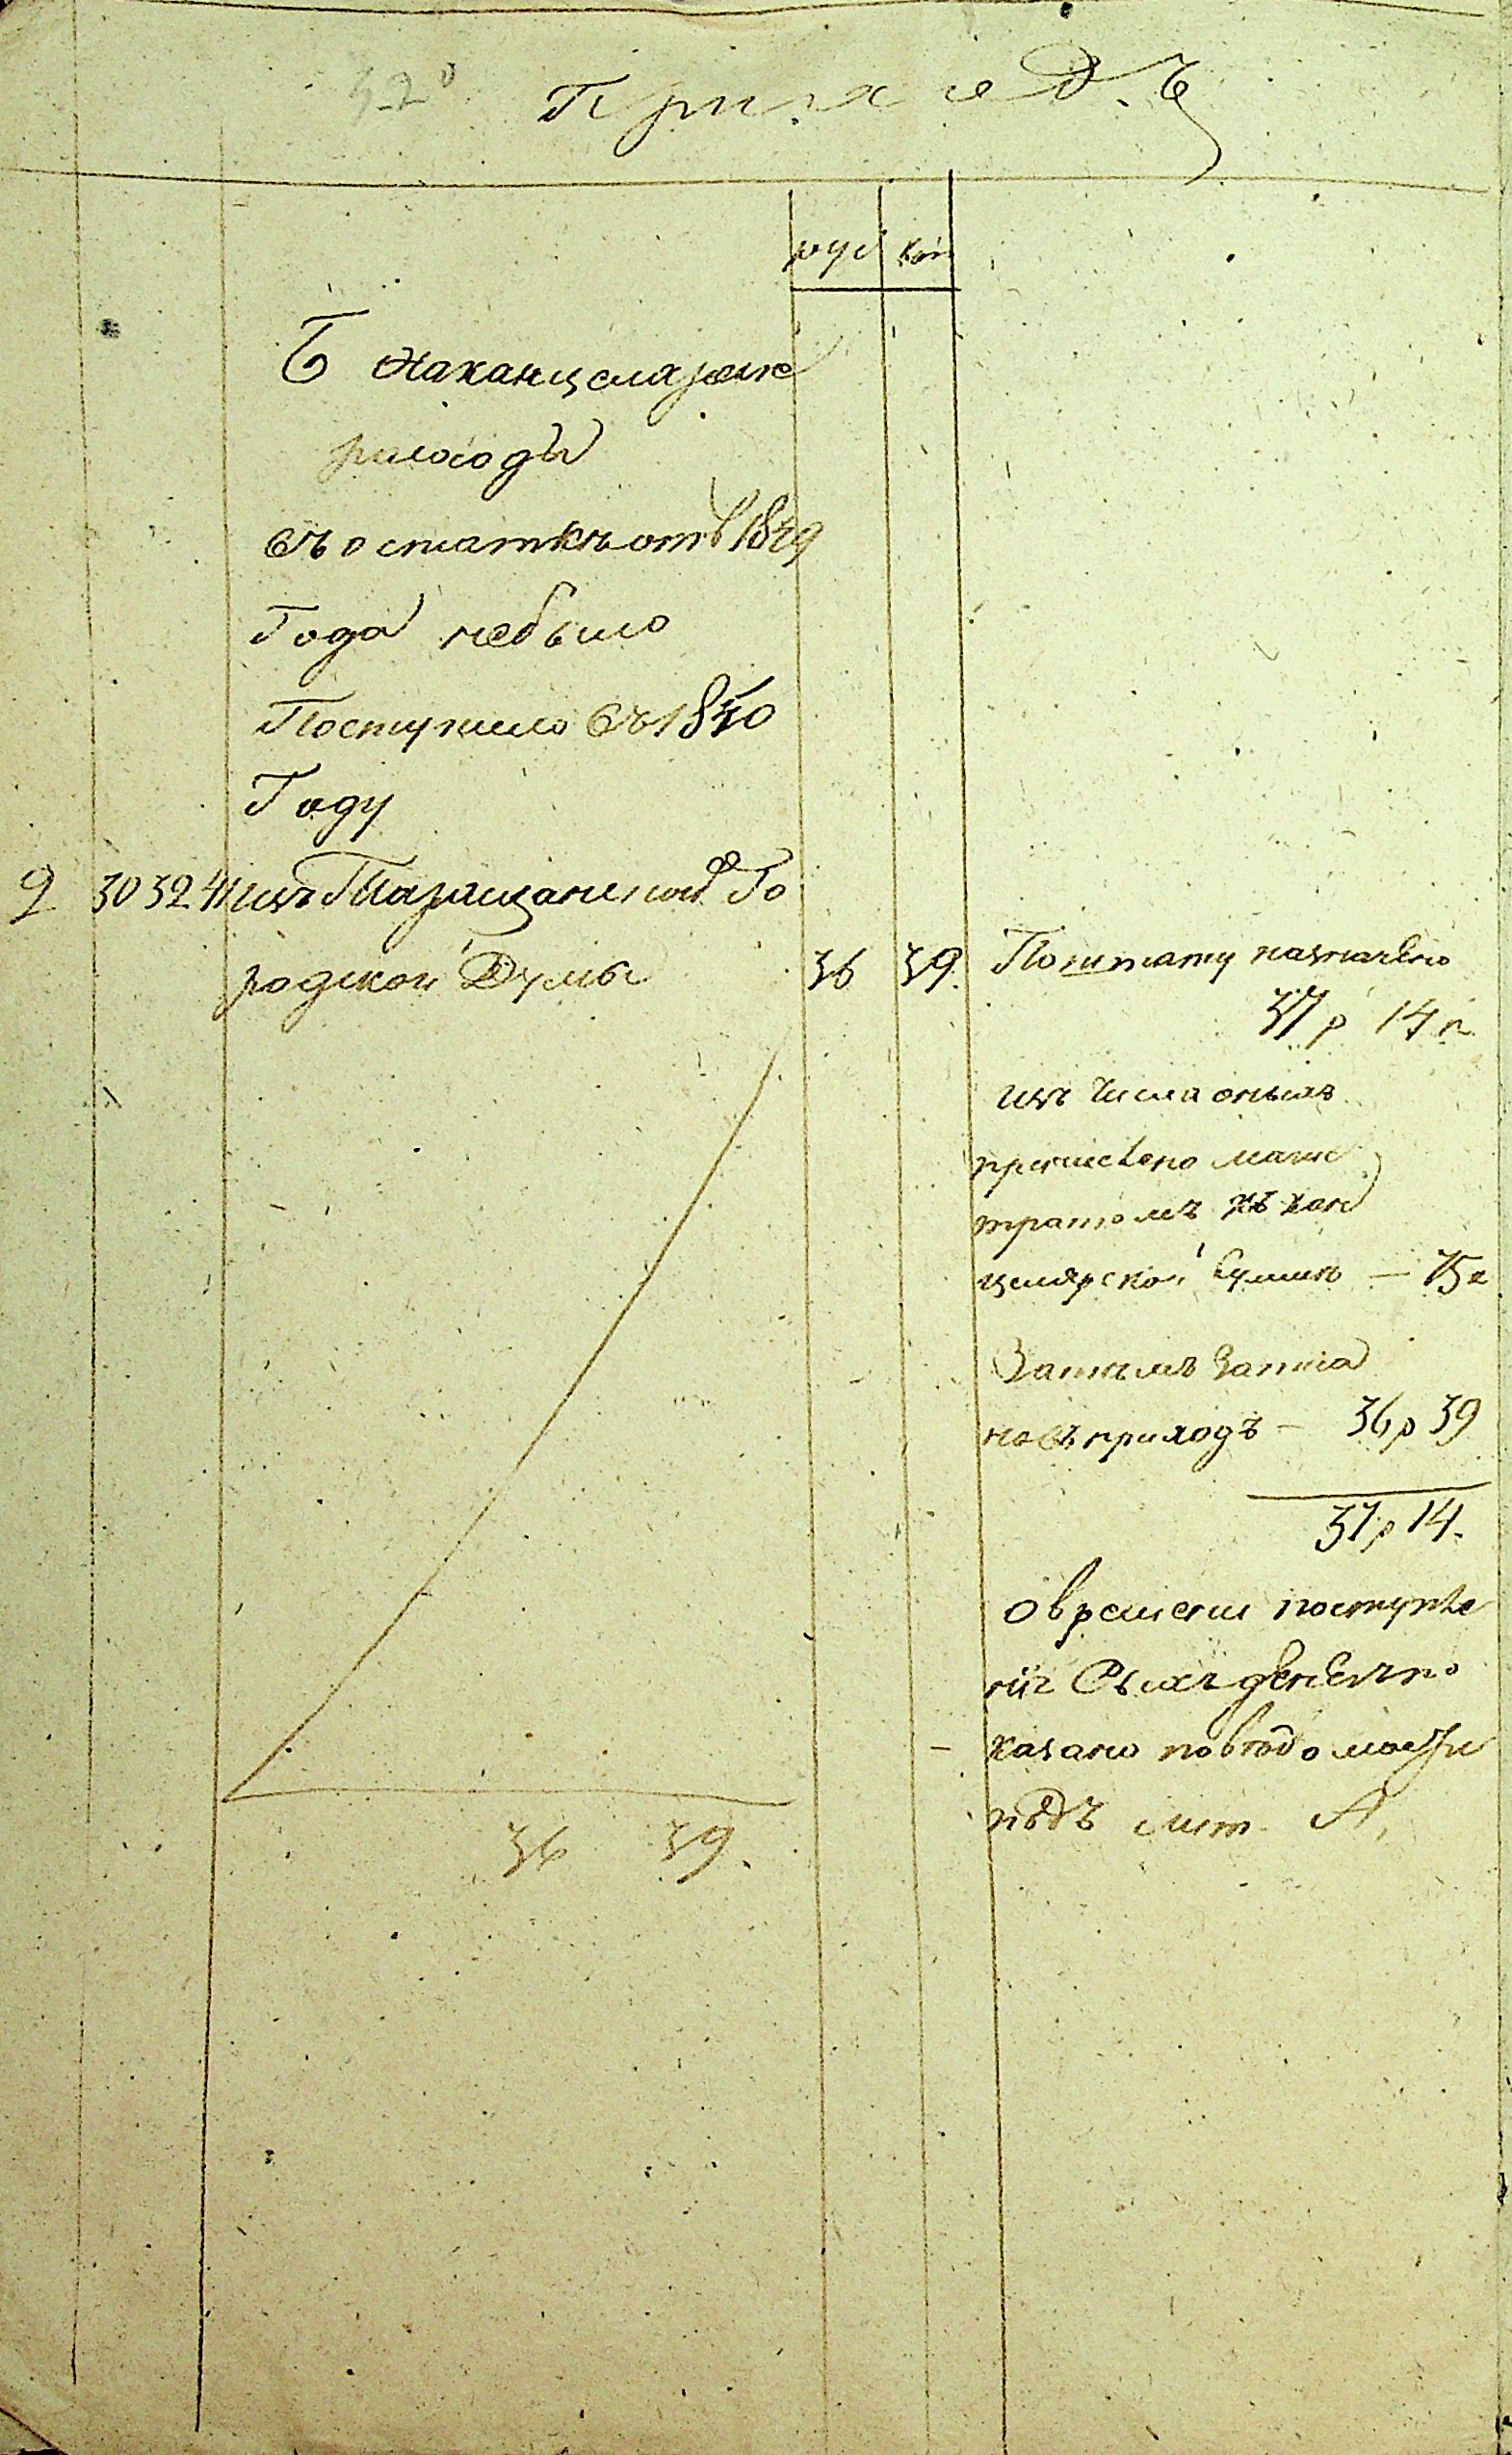 Приходъ
руб коп
Б На канцелярские
расходы
Въ остаткѣ отъ 1849
Года небыло
Поступило Въ 1850
Году
2 30 32 41 изъ Таращанской Го
родской Думы 36 39.
По штату назначено
37 р 14 к
изъ числа оныхъ
причислено маги
тратомъ къ кан
целярской Суммѣ — 75 к
Затѣмъ Записа
но въ приходъ — 36 р 39
37 р 14.
О времени поступле
ніи Сихъ денегъ по
казано по вѣдомости
подъ лит. А,
36 39.